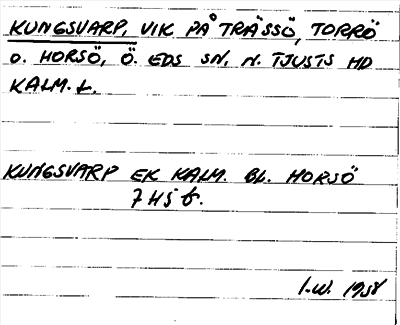 KUNGSVARP, VIK PÅ TRÄSSÖ, TORRÖ
O. HORSÖ, Ö. EDS SN, N. TJUSTS HD
KALM. L.
KUNGSVARP EK KALM. BL. HORSÖ
7 H5 f.
I.W. 1958